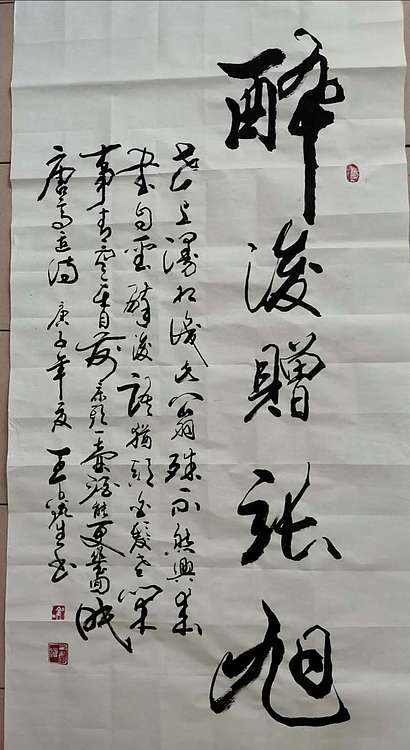 醉後贈張旭
世上漫相識此翁殊不然興來
書自聖醉後語猶顛白髮老閒
事青雲在目前床頭一壺酒能更幾回眠
唐高適詩 庚子年夏 王生書